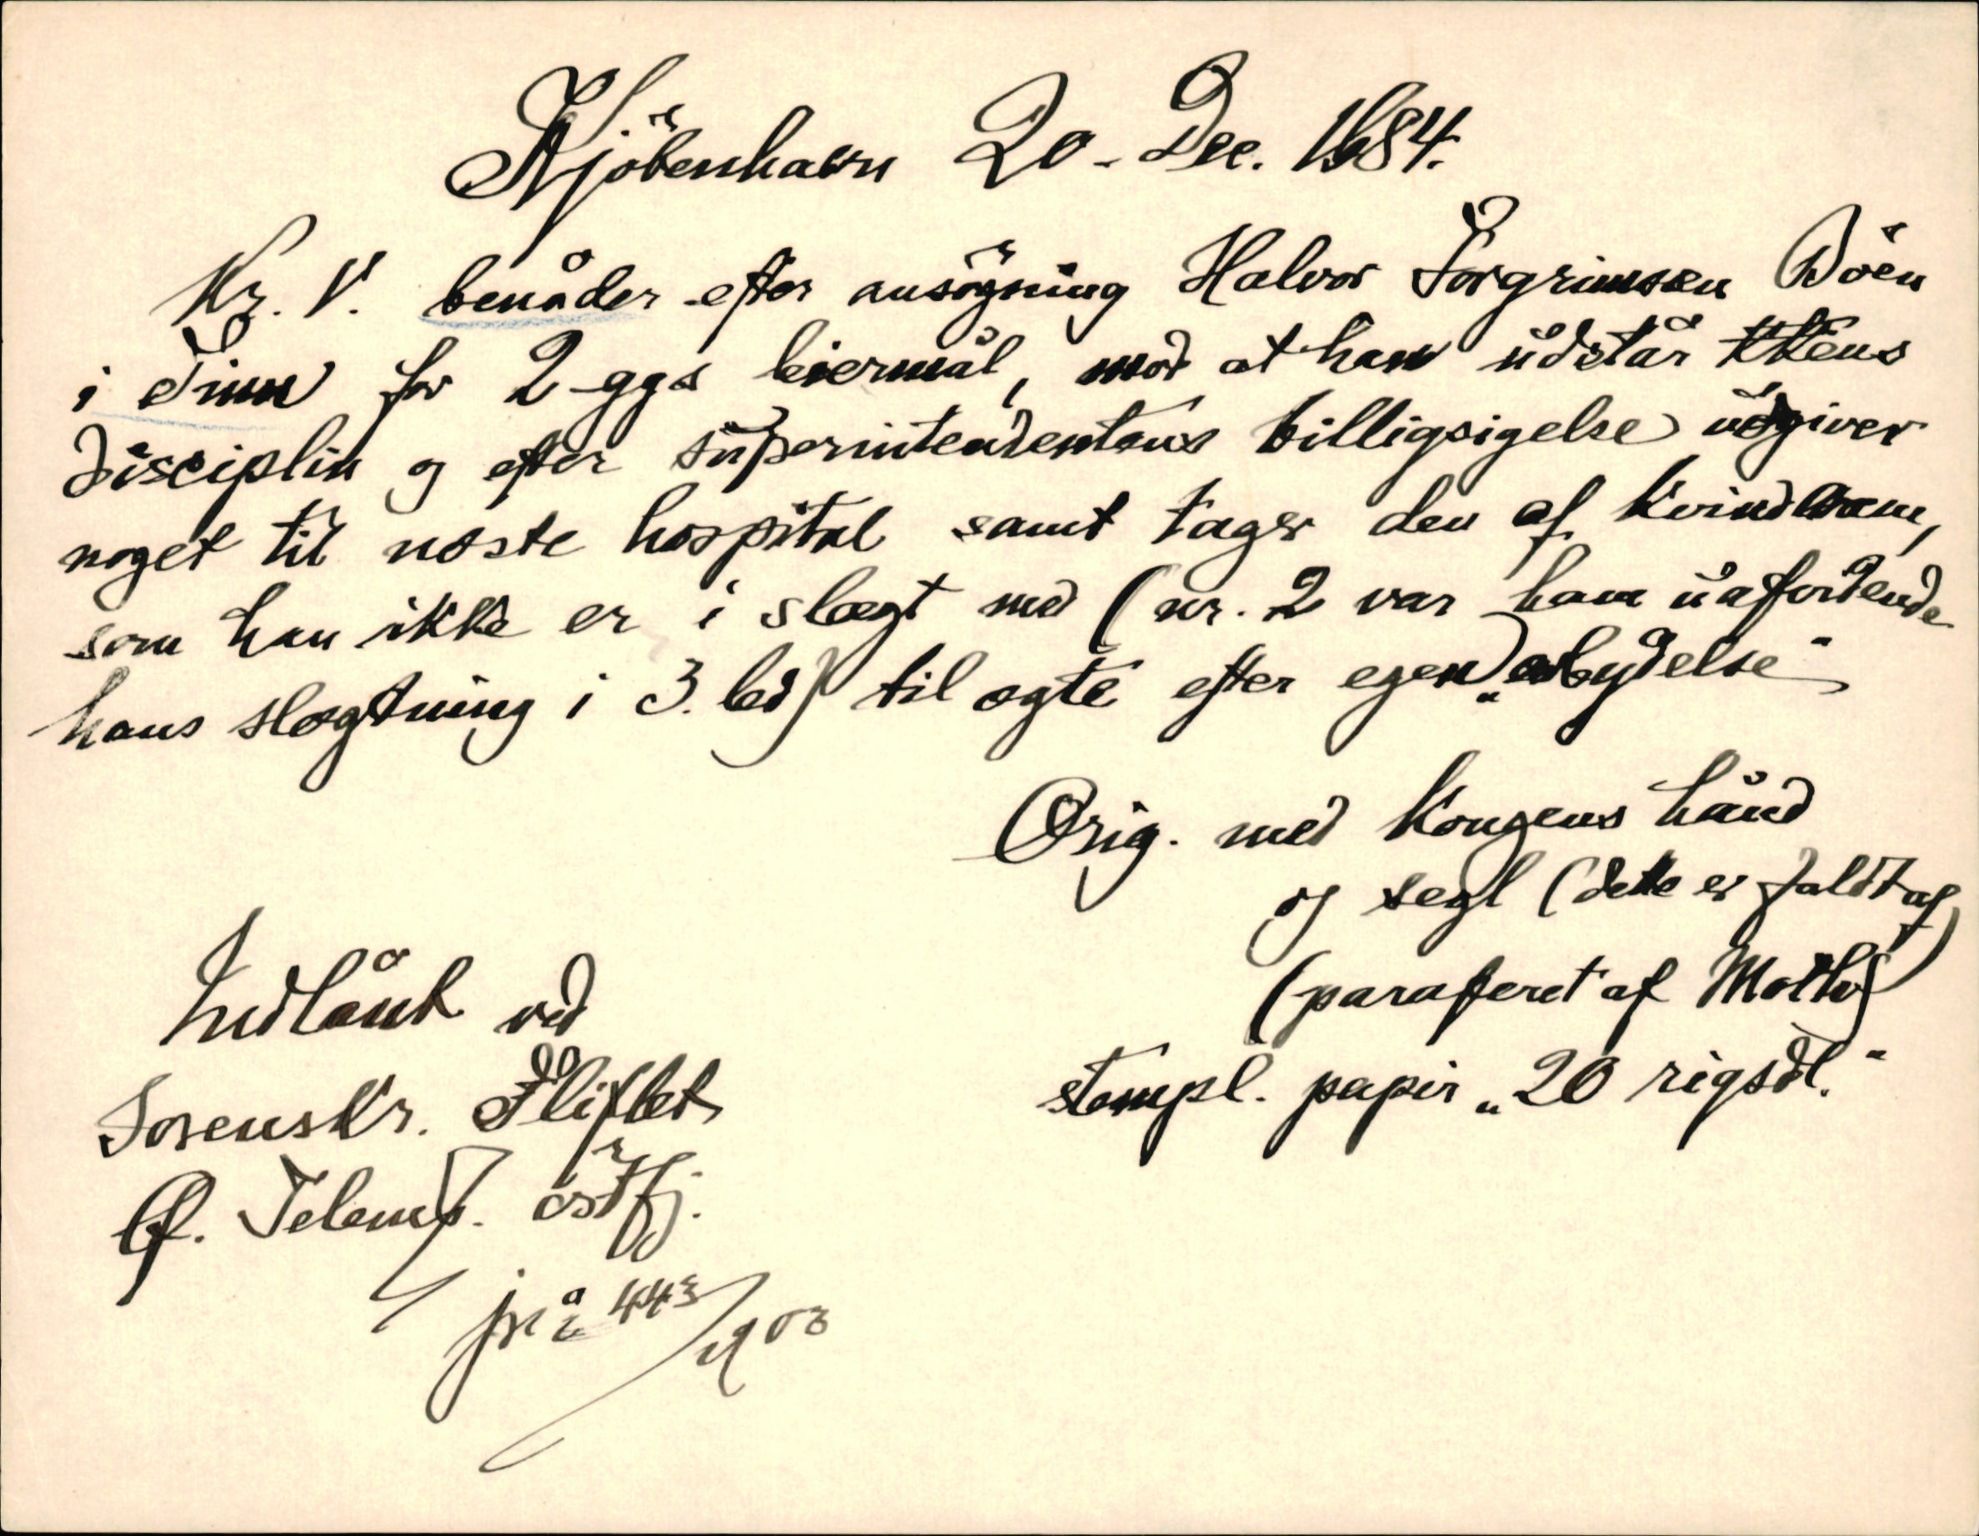 Kjöbenhavn 20. Dec. 1684.
Kr. V. benåder efter ansögning Halvor Torgrimsen Böen
i Tinn for 2 ggs leiermål, mod at han udstår kkens
disciplin og efter superintendentens billigsigelse udgiver
noget til næste hospital samt tager den af kvindarne,
som han ikke er i slægt med (nr. 2 var ham uafvidende
hans slægtning i 3. led) til ægte efter egen „erbydelse“
Orig. med kongens hånd
og segl (dette er faldt af)
(paraferet af Moth)
stempl. papir „20 rigsdl.“
Indlånt ved
Sorenskr. Fliflet
Ø. Telem. östfj.
jr. å 443/1903